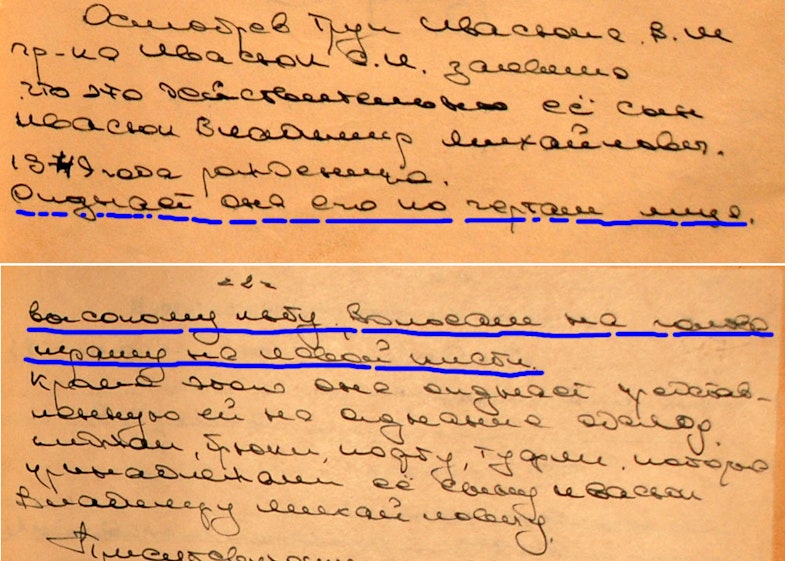 Осмотрев труп Ивасюка В.М
гр-ка Ивасюк С.И. заявила
что это действительно её сын
Ивасюк Владимир Михайлович.
1949 года рождения.
Опознает она его по чертам лица,
-2-
высокому лбу, волосам на голове
шраму на левой кисти.
Кроме этого она опознает представ-
ленную ей на опознание одежду
пиджак, брюки, кофту, туфли, которые
принадлежали её сыну Ивасюк
Владимиру Михайловичу.